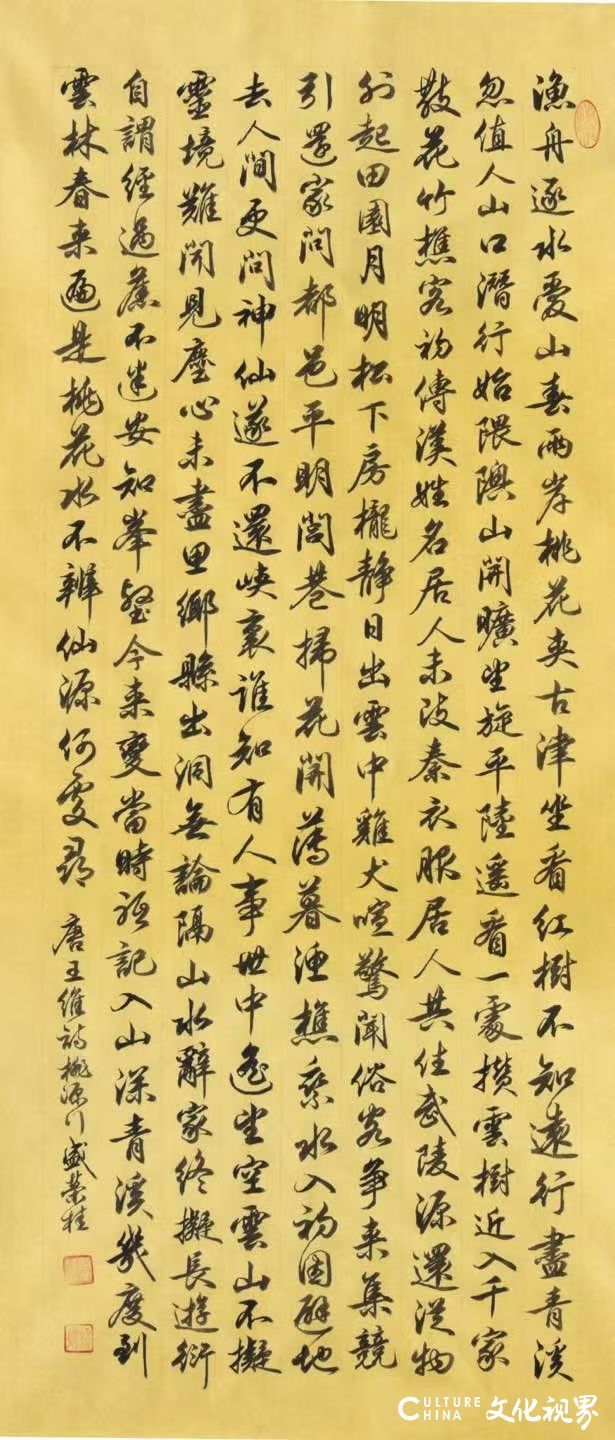 漁舟逐水愛山春兩岸桃花夾古津坐看紅樹不知遠行盡青溪
忽值人山口潛行始隈隩山開曠望旋平陸遥看一處攢雲樹近入千家
散花竹樵客初傳漢姓名居人未改秦衣服居人共住武陵源還從物
外起田園月明松下房櫳靜日出雲中雞犬喧驚聞俗客爭来集競
引還家問都邑平明閭巷掃花開薄暮漁樵乘水入初因避地
去人間更問神仙遂不還峽裏誰知有人事世中遙望空雲山不擬
靈境難聞見塵心未盡思鄉縣出洞無論隔山水辭家終擬長遊衍
自謂經過舊不迷安知峯壑今来變當時祇記入山深青溪幾度到
雲林春来遍是桃花水不辨仙源何處尋 唐王維詩桃源行 盛荣桂
CULTURE CHINA 文化视界